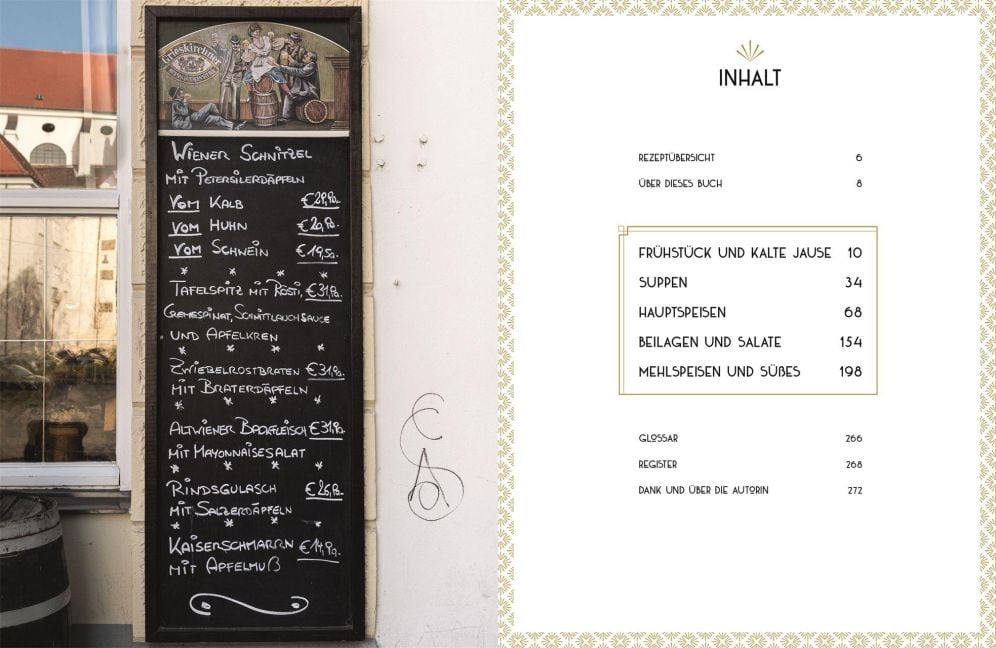 Grieskirchner
WIENER SCHNITZEL
MIT PETERSILERDÄPFELN
VOM KALB €29,90.
VOM HUHN €20,90.
VOM SCHWEIN €19,50.
TAFELSPITZ MIT RÖSTI, €31,90.
CREMESPINAT, SCHNITTLAUCHSAUCE
UND APFELKREN
ZWIEBELROSTBRATEN €31,90.
MIT BRATERDÄPFELN
ALTWIENER BACKFLEISCH €31,90.
MIT MAYONNAISESALAT
RINDSGULASCH €26,90.
MIT SALZERDÄPFELN
KAISERSCHMARRN €14,90.
MIT APFELMUß
INHALT
REZEPTÜBERSICHT 6
ÜBER DIESES BUCH 8
FRÜHSTÜCK UND KALTE JAUSE 10
SUPPEN 34
HAUPTSPEISEN 68
BEILAGEN UND SALATE 154
MEHLSPEISEN UND SÜßES 198
GLOSSAR 266
REGISTER 268
DANK UND ÜBER DIE AUTORIN 272